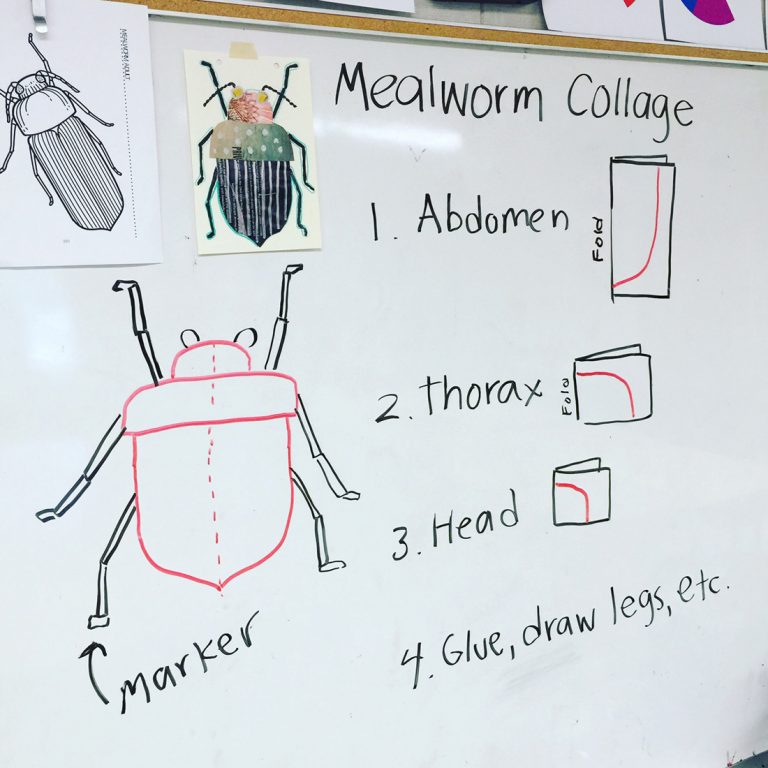 MEALWORM ADULT
Mealworm Collage
1. Abdomen
Fold
2. Thorax
Fold
3. Head
4. Glue, draw legs, etc.
marker